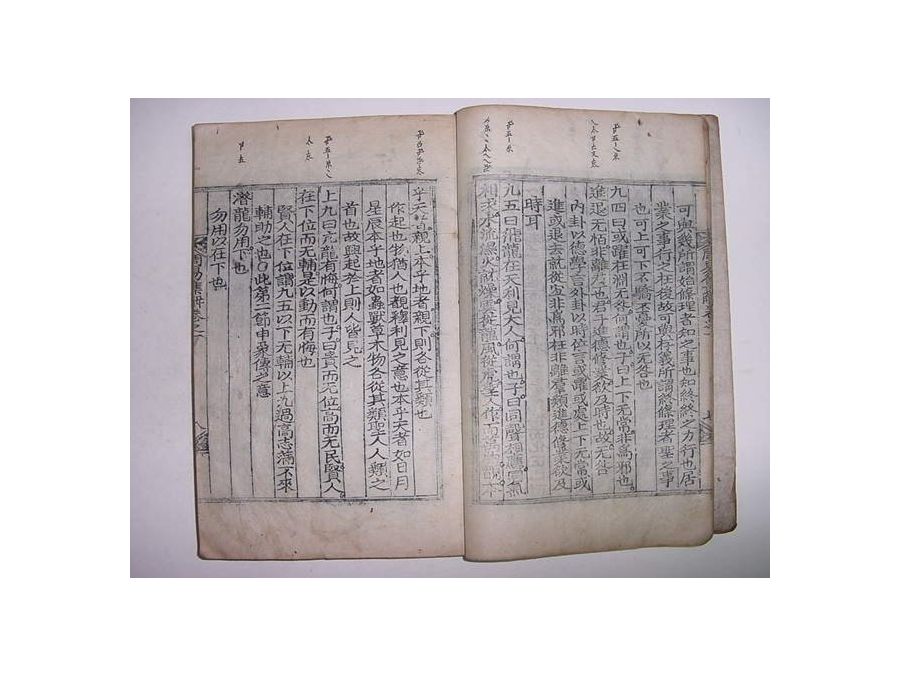 可與幾所謂始條理者知之事也知終終之力行也居
業之事行之在後故可與存義所謂終條理者聖之事
也可上可下不驕不憂所以无咎也
九四曰或躍在淵无咎何謂也子曰上下无常非爲邪也
進退无恒非離羣也君子進德修業欲及時也故无咎
內卦以德學言外卦以時位言或躍或處上下无常或
進或退主就從宜非爲邪枉非離羣類進德修業欲及
時耳
九五曰飛龍在天利見大人何謂也子曰同聲相應同氣
相求水流濕火就燥雲從龍風從虎聖人作而萬物覩本
乎天者親上本乎地者親下則各從其類也
作起也物猶人也覩釋利見之意也本乎天者如日月
星辰本乎地者如蟲獸草木物各從其類聖人人類之
首也故興起於上則人皆見之
上九曰亢龍有悔何謂也子曰貴而无位高而无民賢人
在下位而无輔是以動而有悔也
賢人在下位謂九五以下无輔以上九過高志滿不來
輔助之也○此第二節申象傳之意
潛龍勿用下也
勿用以在下也
周易集解卷之一